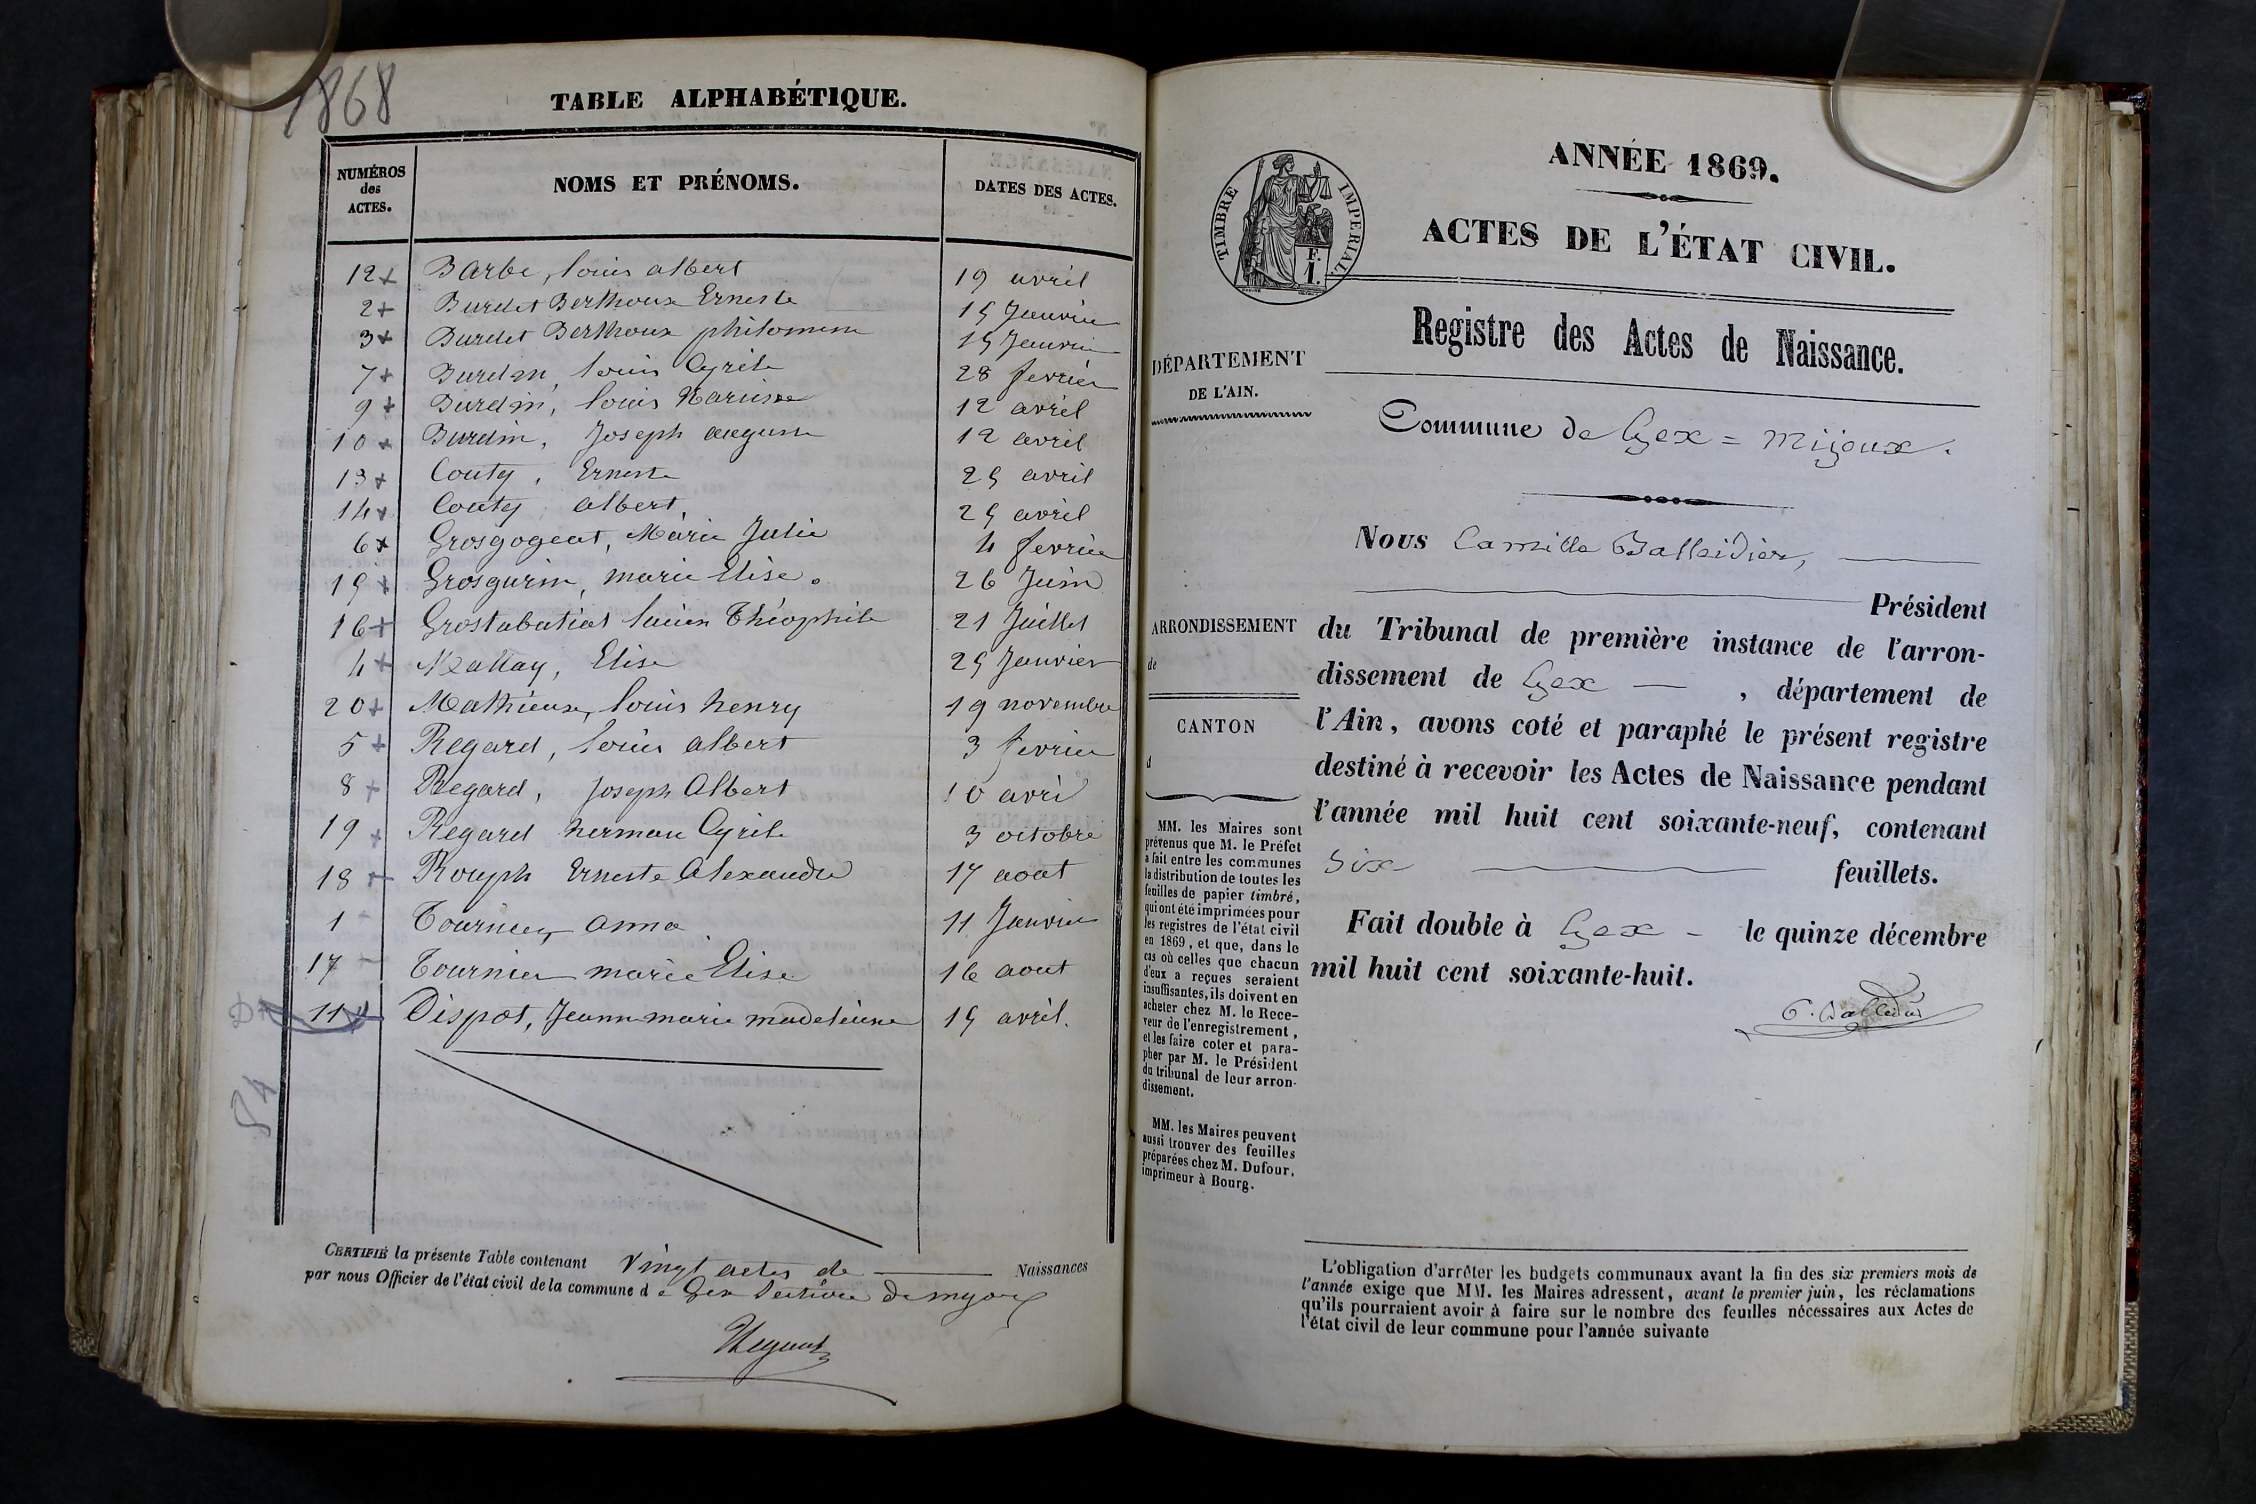 1868
TABLE ALPHABÉTIQUE.
NUMÉROS des ACTES. NOMS ET PRÉNOMS. DATES DES ACTES.
12 Barbe, louis albert 19 avril
2 Burdet Berthoux Erneste 15 Janvier
3 Burdet Berthoux philomene 15 Janvier
7 Burdin, louis Cyrile 28 fevrier
9 Burdin, louis Narcisse 12 avril
10 Burdin, Joseph auguste 12 avril
13 Couty, Erneste 25 avril
14 Couty albert, 25 avril
6 Grosgogeat, Marie Julie 4 fevrier
15 Grosgurin, marie Elise. 26 Juin
16 Grostabatiat lucien Théophile 21 Juillet
4 Mallay, Elise 25 Janvier
20 Mathieux, louis henry 19 novembre
5 Regard, louis albert 3 fevrier
8 Regard, Joseph Albert 10 avril
19 Regard herman Cyrile 3 octobre
18 Rouph Erneste Alexandre 17 aoat
1 Tournier anna 11 Janvier
17 Tournier marie Elise 16 aout
11 Dispot, Jeanne marie madeleine 15 avril.
CERTIFIÉ la présente Table contenant vingt actes de Naissances
par nous Officier de l'état civil de la commune d e Gex Section de myoux
Regard
ANNÉE 1869.
TIMBRE IMPERIAL.
F.
1.
ACTES DE L'ÉTAT CIVIL.
Registre des Actes de Naissance.
DÉPARTEMENT
DE L'AIN.
Commune de Gex = Mijoux.
Nous Camille Balleidier,
Président
ARRONDISSEMENT
de
du Tribunal de première instance de l'arron-
dissement de Gex , département de
l'Ain, avons coté et paraphé le présent registre
destiné à recevoir les Actes de Naissance pendant
l'année mil huit cent soixante-neuf, contenant
Six feuillets.
Fait double à Gex le quinze décembre
mil huit cent soixante-huit.
C. Balleidier
CANTON
d
MM. les Maires sont
prévenus que M. le Préfet
a fait entre les communes
la distribution de toutes les
feuilles de papier timbré,
qui ont été imprimées pour
les registres de l'état civil
en 1869, et que, dans le
cas où celles que chacun
d'eux a reçues seraient
insuffisantes, ils doivent en
acheter chez M. le Rece-
veur de l'enregistrement,
et les faire coter et para-
pher par M. le Président
du tribunal de leur arron-
dissement.
MM. les Maires peuvent
aussi trouver des feuilles
préparées chez M. Dufour,
imprimeur à Bourg.
L'obligation d'arrêter les budgets communaux avant la fin des six premiers mois de
l'année exige que MM. les Maires adressent, avant le premier juin, les réclamations
qu'ils pourraient avoir à faire sur le nombre des feuilles nécessaires aux Actes de
l'état civil de leur commune pour l'année suivante